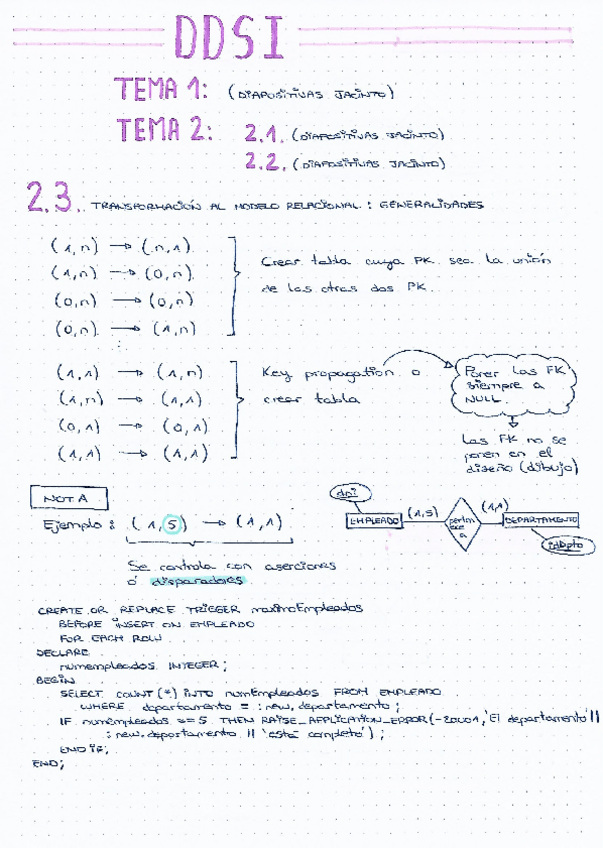 DDSI
TEMA 1: (DIAPOSITIVAS JACINTO)
TEMA 2: 2.1. (DIAPOSITIVAS JACINTO)
2.2. (DIAPOSITIVAS JACINTO)
2.3. TRANSFORMACIÓN AL MODELO RELACIONAL: GENERALIDADES
(1,n) → (n,1)
(1,n) → (0,n)
(0,n) → (0,n)
(0,n) → (1,n)
Crear tabla cuya PK sea la unión
de las otras dos PK.
(1,1) → (1,n)
(1,n) → (1,1)
(0,1) → (0,1)
(1,1) → (1,1)
Key propagation o
crear tabla
Poner las FK
siempre a
NULL.
Las FK no se
ponen en el
diseño (dibujo)
NOTA
Ejemplo: (1,5) → (1,1)
Se controla con aserciones
ó disparadores.
dni
EMPLEADO (1,5) perten
ece
a (1,1) DEPARTAMENTO
idDpto
CREATE OR REPLACE TRIGGER maximoEmpleados
BEFORE INSERT ON EMPLEADO
FOR EACH ROW
DECLARE
numempleados INTEGER;
BEGIN
SELECT COUNT(*) INTO numEmpleados FROM EMPLEADO
WHERE departamento = :new.departamento;
IF numEmpleados >=5 THEN RAISE_APPLICATION_ERROR(-20001,'El departamento'||
:new.departamento || 'está completo');
END IF;
END;